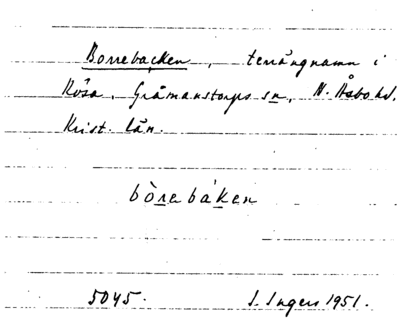 Borrebacken, terrängnamn i
Rösa, Gråmanstorps sn, N. Åsbo hd.
Krist. län.
bòrebáken
5045. I. Ingers 1951.